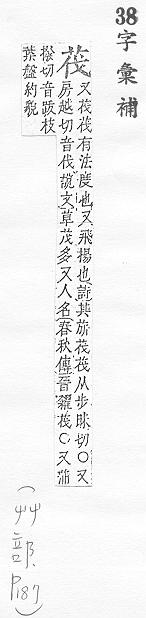 38字彙補
茷 又茷茷有法度也又飛揚也詩其旂茷茷从步昧切○又
房越切音伐說文草茂多又人名春秋傳晉糴茷○又蒲
撥切音跋枝
葉盤約貌
(艸部.P187)